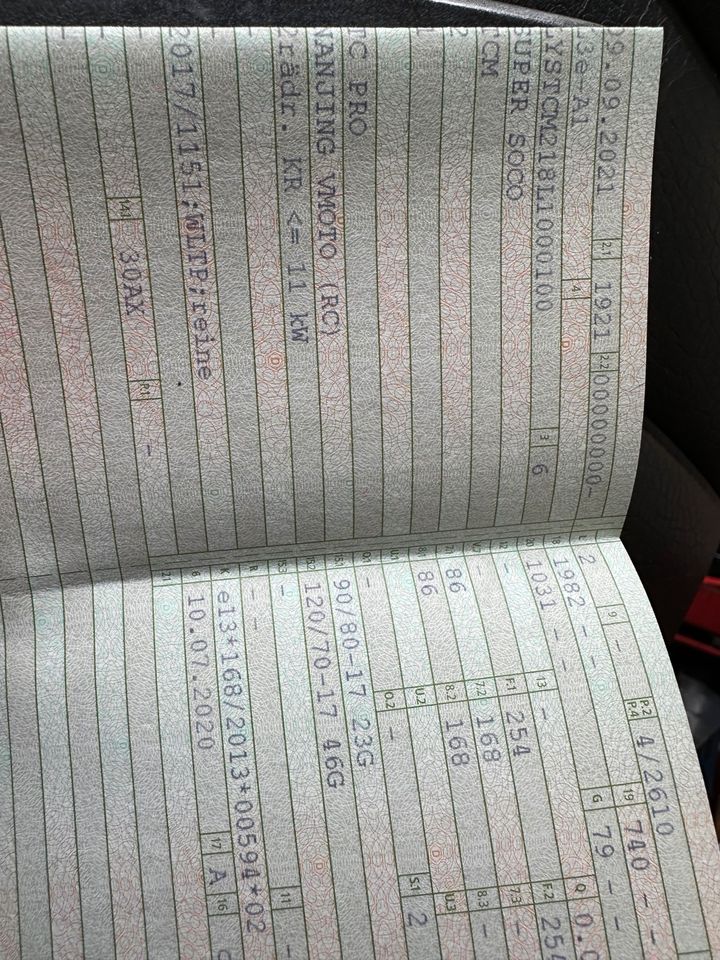 9.09.2021 21 1921 22 00000000-
3e-A1 4
YSTCM218L1000100 3 6
SUPER SOCO
TCM
2
TC PRO
NANJING VMOTO (RC)
rädr. KR <= 11 kW
-
2017/1151;WLTP;reine
-
14.1 30AX P.1 -
L 2 9 - P.2 P.4 4/2610
18 1982 - - 19 740 - -
20 1031 - - G 79 - -
12 - 13 - Q 0.0
V.7 - F.1 254 F.2 254
7.1 86 7.2 168 7.3 -
8.1 86 8.2 168 8.3 -
U.1 - U.2 - U.3
O.1 - O.2 - S.1 2
15.1 90/80-17 23G
15.2 120/70-17 46G
15.3 -
R - - 11 -
K e13*168/2013*00594*02
6 10.07.2020 17 A 16
21